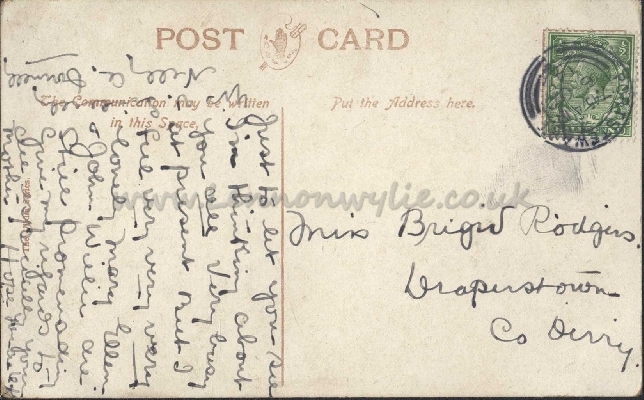 POST CARD
The Communication may be written
in this Space.
Put the Address here.
www.simonwylie.co.uk
Miss Brigid Rodgers.
Draperstown
Co Derry.
Just to let you see
I'm thinking about
you all. Very busy
at present but I
feel very very very
lonely. Mary Ellen
& John Willie are
still promenading
Give my regards to
all especially your
mother. Hope
Nelly